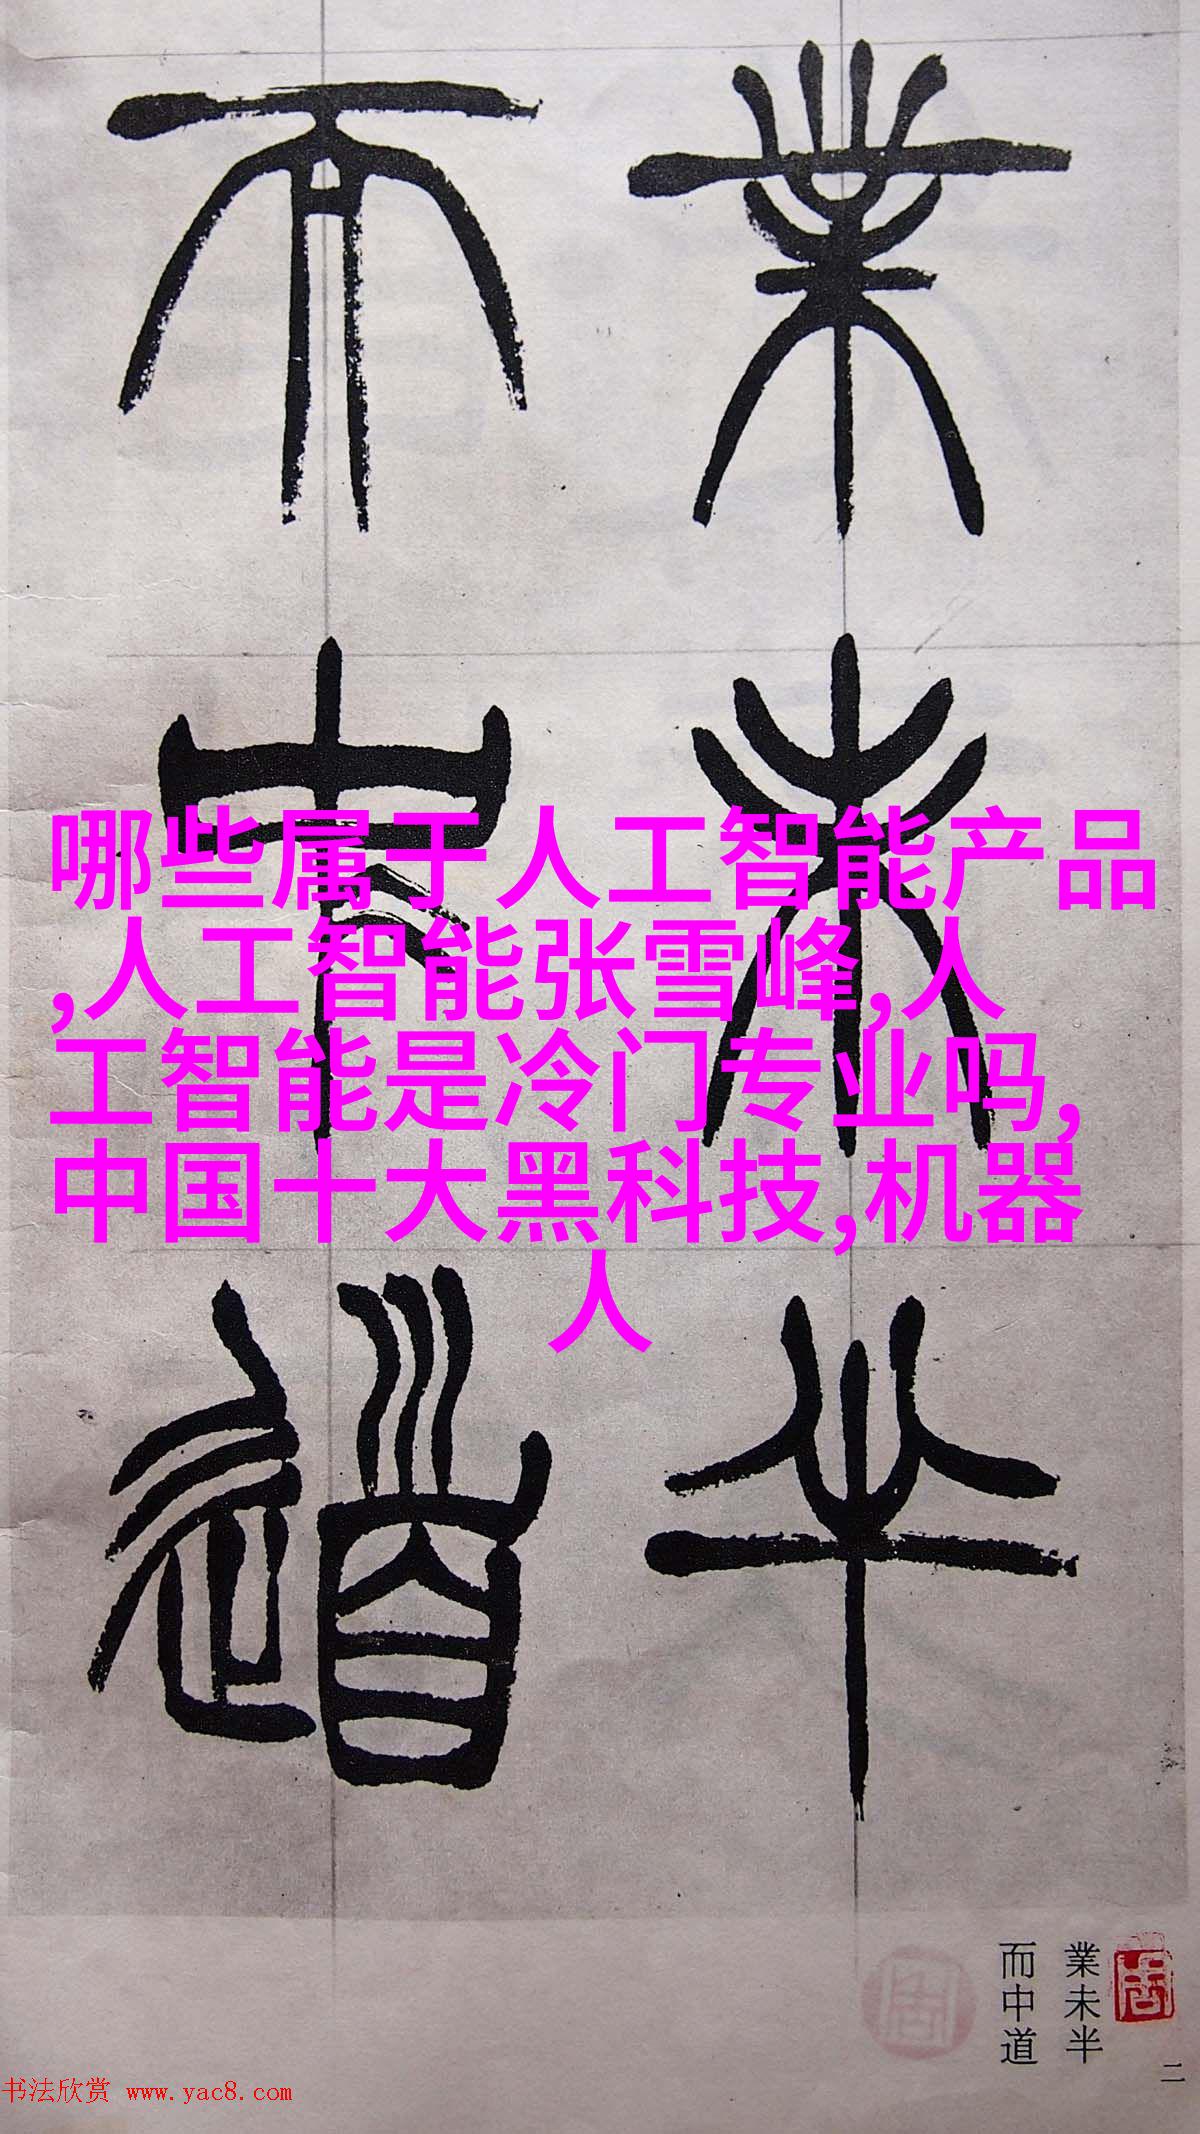 業未半
而中道
哪些属于人工智能产品
,人工智能张雪峰,人
工智能是冷门专业吗,
中国十大黑科技,机器
人
業未半
而中道
二
书法欣赏 www.yac8.com